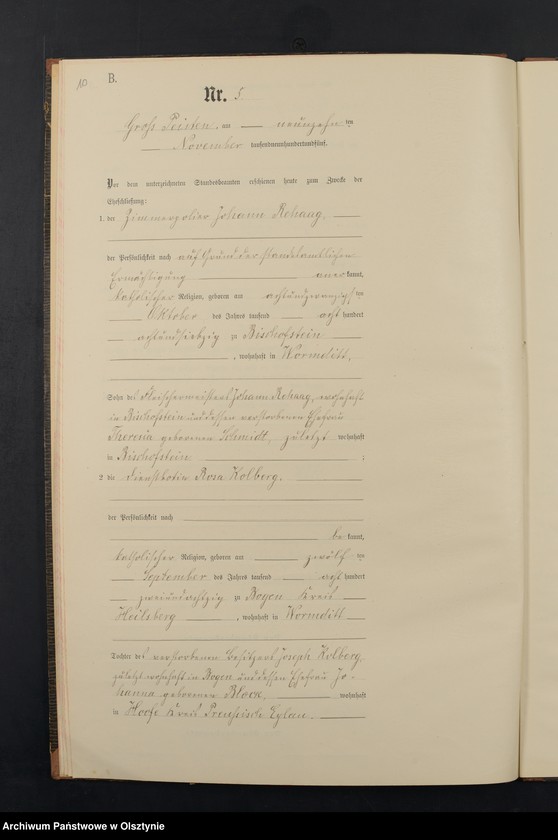 10
B.
Nr. 5
Groß Peisten, am neunzehn ten
November tausendneunhundertundfünf.
Vor dem unterzeichneten Standesbeamten erschienen heute zum Zwecke der
Eheschließung:
1. der Zimmerpolier Johann Rehaag,
der Persönlichkeit nach auf Grund der standesamtlichen
Ermächtigung anerkannt,
katholischer Religion, geboren am achtundzwanzigsten
Oktober des Jahres tausend acht hundert
achtundsiebzig zu Bischofstein
, wohnhaft in Wormditt,
Sohn des Fleischermeisters Johann Rehaag, wohnhaft
in Bischofstein und dessen verstorbenen Ehefrau
Theresia geborenen Schmidt, zuletzt wohnhaft
in Bischofstein ;
2 die Dienstbotin Rosa Kolberg.
der Persönlichkeit nach
be kannt,
katholischer Religion, geboren am zwölf ten
September des Jahres tausend acht hundert
zweiundachtzig zu Bogen Kreis
Heilsberg , wohnhaft in Wormditt
Tochter des verstorbenen Besitzers Joseph Kolberg,
zuletzt wohnhaft in Bogen und dessen Ehefrau Jo-
hanna geborenen Block, wohnhaft
in Hoofe Kreis Preußisch Eylau.
Archiwum Państwowe w Olsztynie